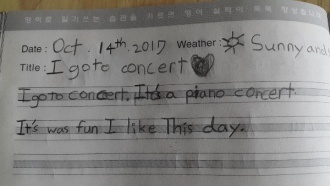 Date : Oct. 14th. 2017 Weather : Sunny and
Title : I go to concert
I go to concert. It's a piano concert.
It's was fun I like This day.